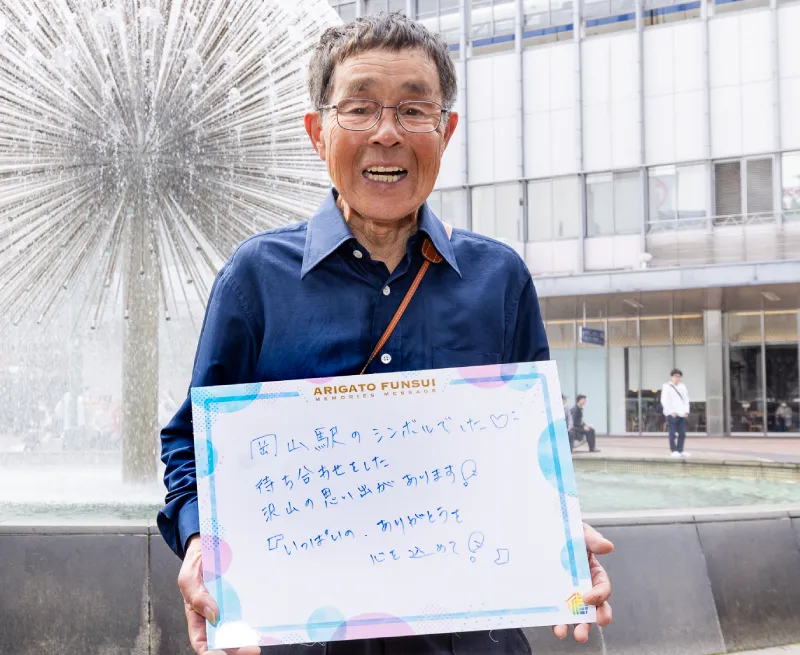 ARIGATO FUNSUI
MEMORIES MESSAGE
岡山駅のシンボルでした♡
待ち合わせをした
沢山の思い出があります!
『いっぱいの.ありがとうを
心を込めて!』